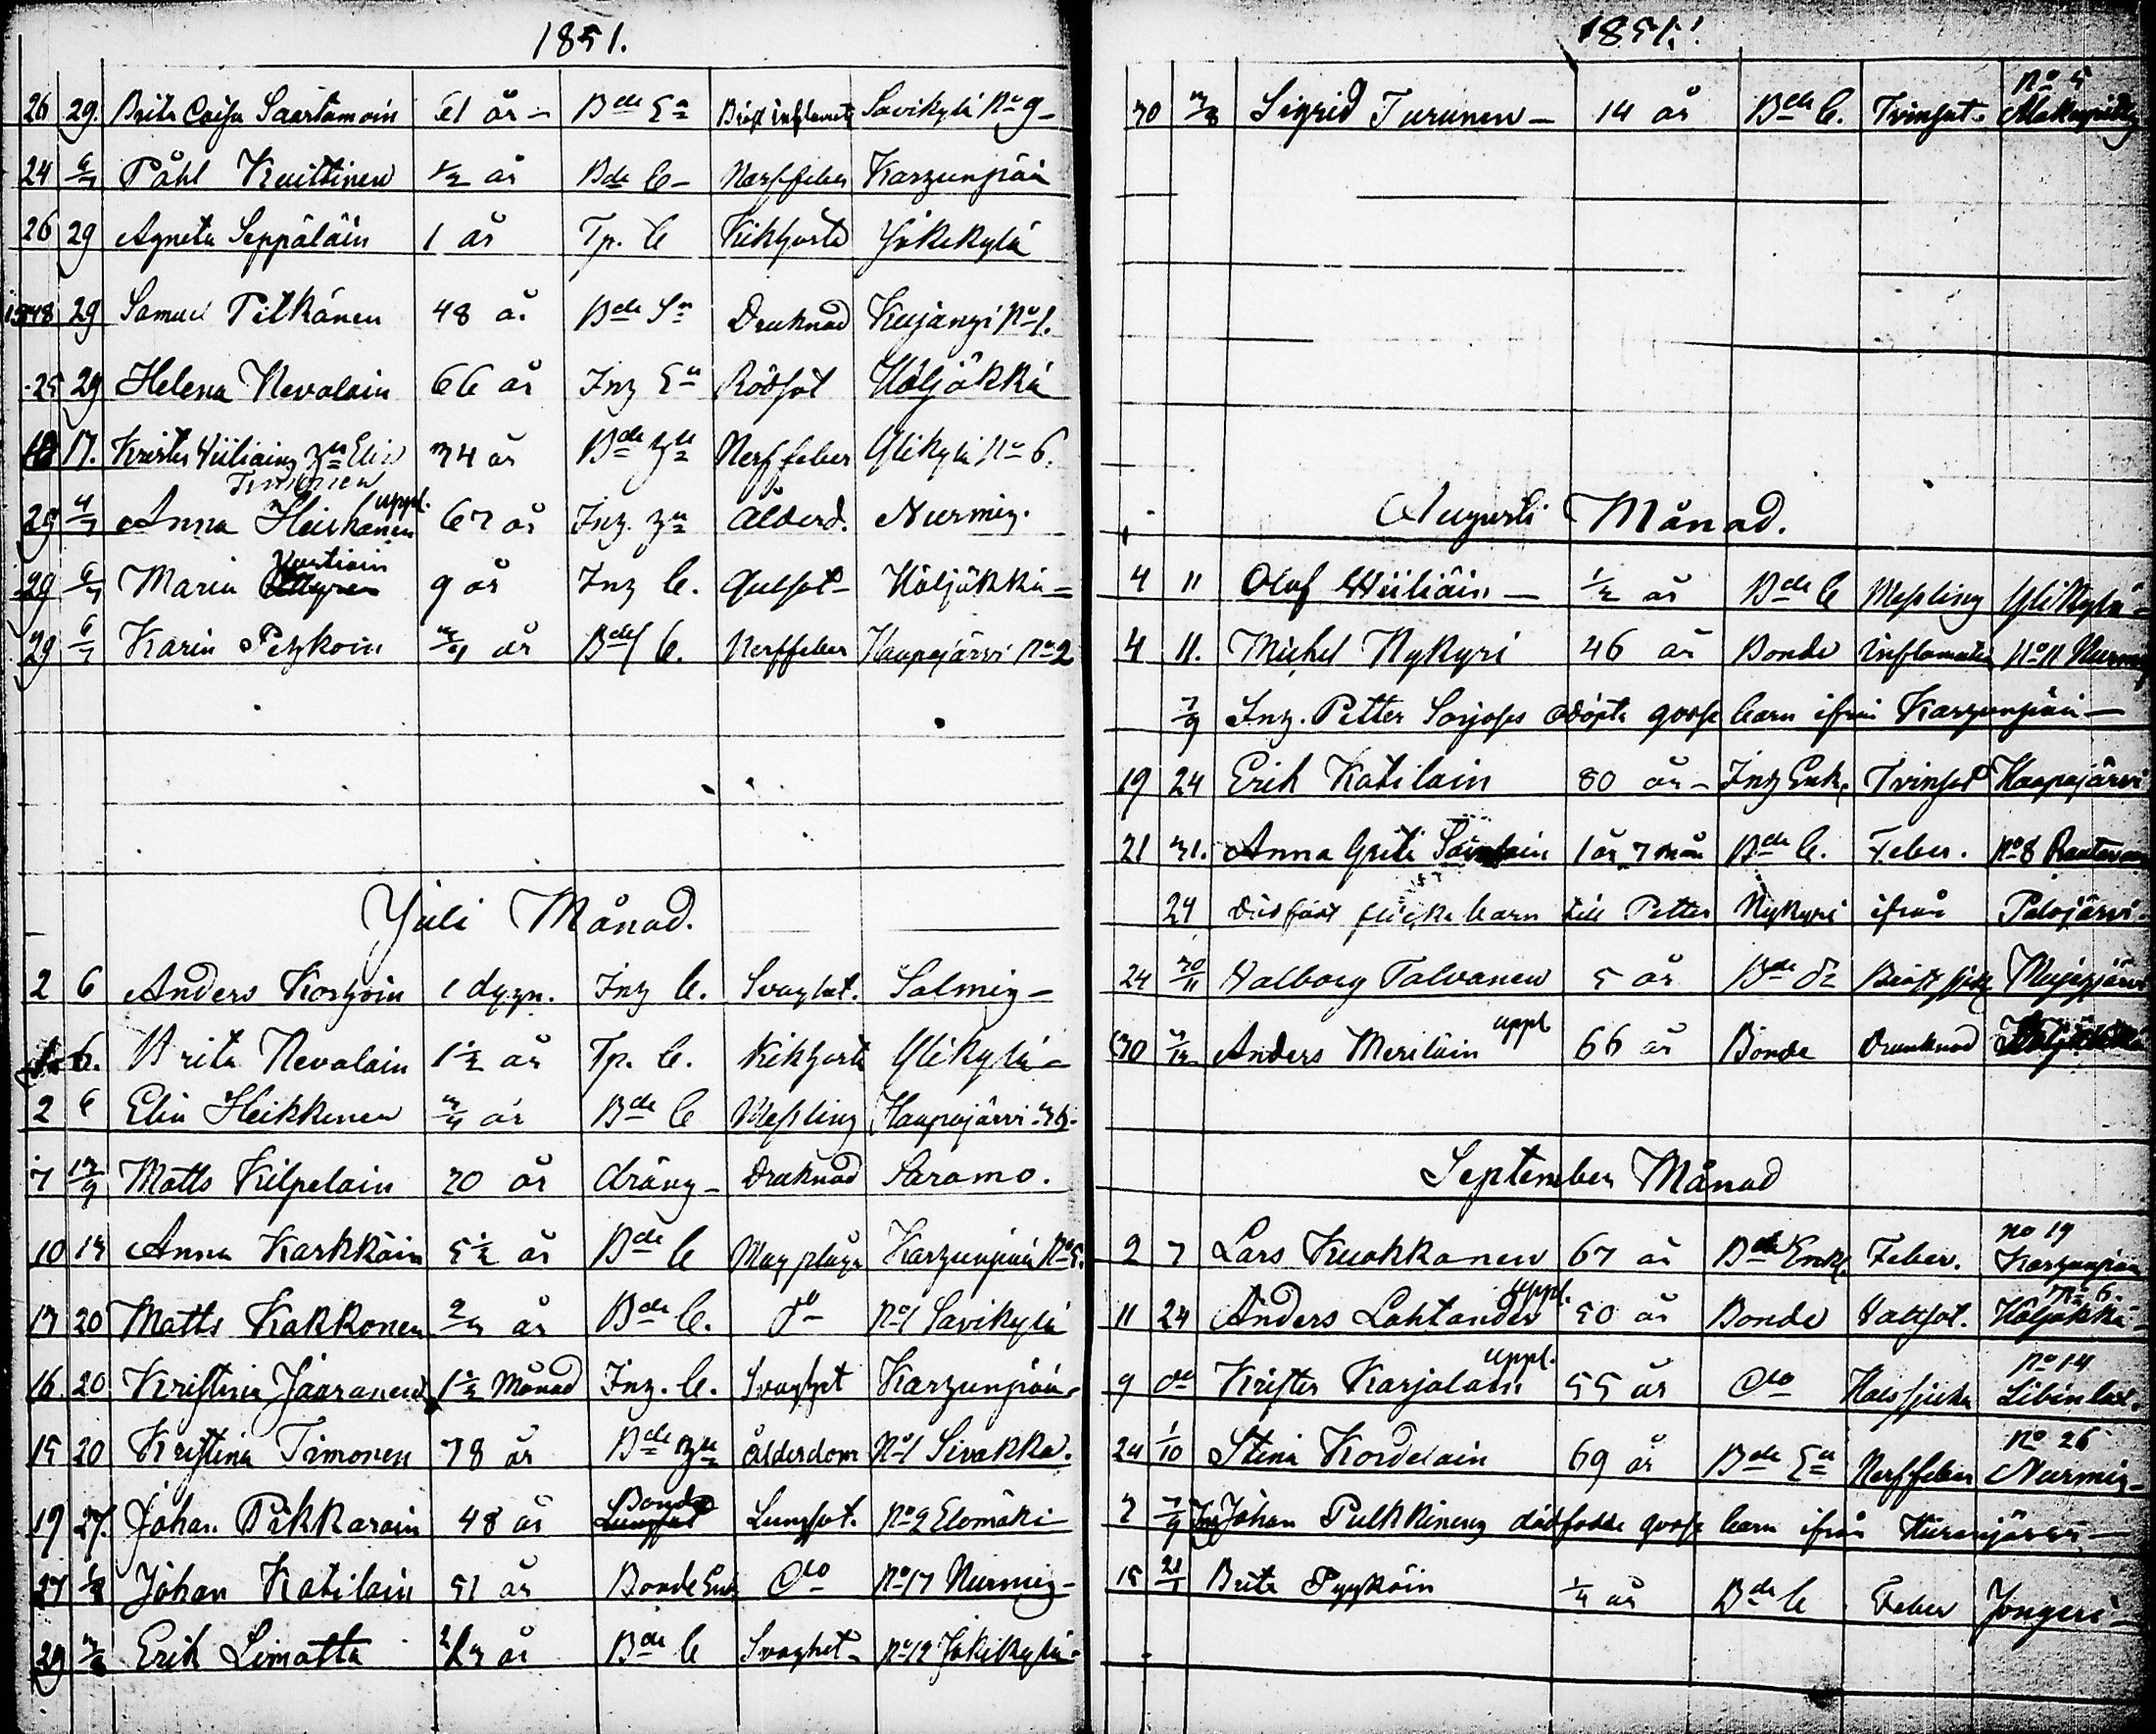 1851.
26 29. Brita Caisa Saastamoin 61 år - Bde Ea Bröst inflamat Savikylä No 9 -
24 6/7 Påhl Kuittinen 1/2 år Bde b - Nerffeber Karzunpää
26 29 Agneta Seppäläin 1 år Tp. b Kikhosta Jokikylä
48 29 Samuel Pitkänen 48 år Bde Sn Druknad Kujangi No 1.
25 29 Helena Nevalain 66 år Inh Ea Rödsot Höljäkkä
17. Krister Viiliains hu Elin 34 år Bde hu Nerffeber Ylikylä No 6.
Timonen
29 4/7 Anna Heiskanen uppl. 67 år Inh. hu Ålderd. Nurmis.
Vartiain
29 6/7 Maria 9 år Inh b. Gulsot - Höljäkkä -
29 6/7 Karin Pezkoin 3/4 år Bde b. Nerffeber Haapajärvi No 2
Juli Månad.
2 6 Anders Korhoin 1 dygn. Inh b. Svaghet. Salmis -
6. Brita Nevalain 1 1/2 år Tp. b. Kikhosta Ylikylä -
2 6 Elin Heikkinen 3/4 år Bde b Messling Haapajärvi
7 13/9 Matts Kilpelain 20 år dräng - Druknad Saramo.
10 13 Anna Karkkäin 5 1/2 år Bde b Magplåga Karzunpää No 5.
13 20 Matts Kakkonen 2/3 år Bde b. do No 1 Savikylä
16 20 Kristina Jaaranen 1 1/2 Månad Inh. b. Svaghet Karzunpää -
15 20 Kristina Timonen 78 år Bde hu Ålderdom No 1 Sivakka.
19 27. Johan Pikkarain 48 år Bonde Lungsot. No 2 Elomäki -
27 1/8 Johan Katilain 51 år Bonde Enk Do No 17 Nurmis -
29 3/8 Erik Limatta 2/3 år Bde b Svaghet - No 12 Jokikylä -
1851.
No 5
30 3/8 Sigrid Turunen - 14 år Bde b. Tvinsot.
Augusti Månad.
4 11 Olof Wiiliäin - 1/2 år Bde b Messling Ylikylä -
4 11. Michel Nykyri 46 år Bonde inflamation No 11 Nurmis
7/9 Inh. Petter Sorjoses odöpta gosse barn ifrån Karzunpää -
19 24 Erik Katilain 80 år - Inh Enk. Tvinsot Haapajärvi
21 31. Anna Greta 1 år 7 mån Bde b. Feber. No 8
24 dödfödt flicke barn till Petter Nykyri ifrån Palojärvi -
24 30/11 Walborg Talvanen 5 år Bde Dr Bröstsjuk Mujejärvi
30 Anders Meriläin uppl 66 år Bonde Drunknad
September Månad
2 7 Lars Kuokkanen 67 år Bde Enkl. Feber. No 19 Karzunpää
11 24 Anders Lahtander uppl. 50 år Bonde Vattsot. No 6. Höljäkkä -
9 do Krister Karjalain uppl. 55 år Do Halssjuka No 14 Libinlax.
24 1/10 Stina Kordelain 69 år Bde Ea Nerffeber No 26 Nurmis -
7 7/9 Inh Johan Pulkkinens dödfödde gosse barn ifrån Kuranjärvi -
15 21/ Brita Pyyköin 1/4 år Bde b Feber Jongeri -